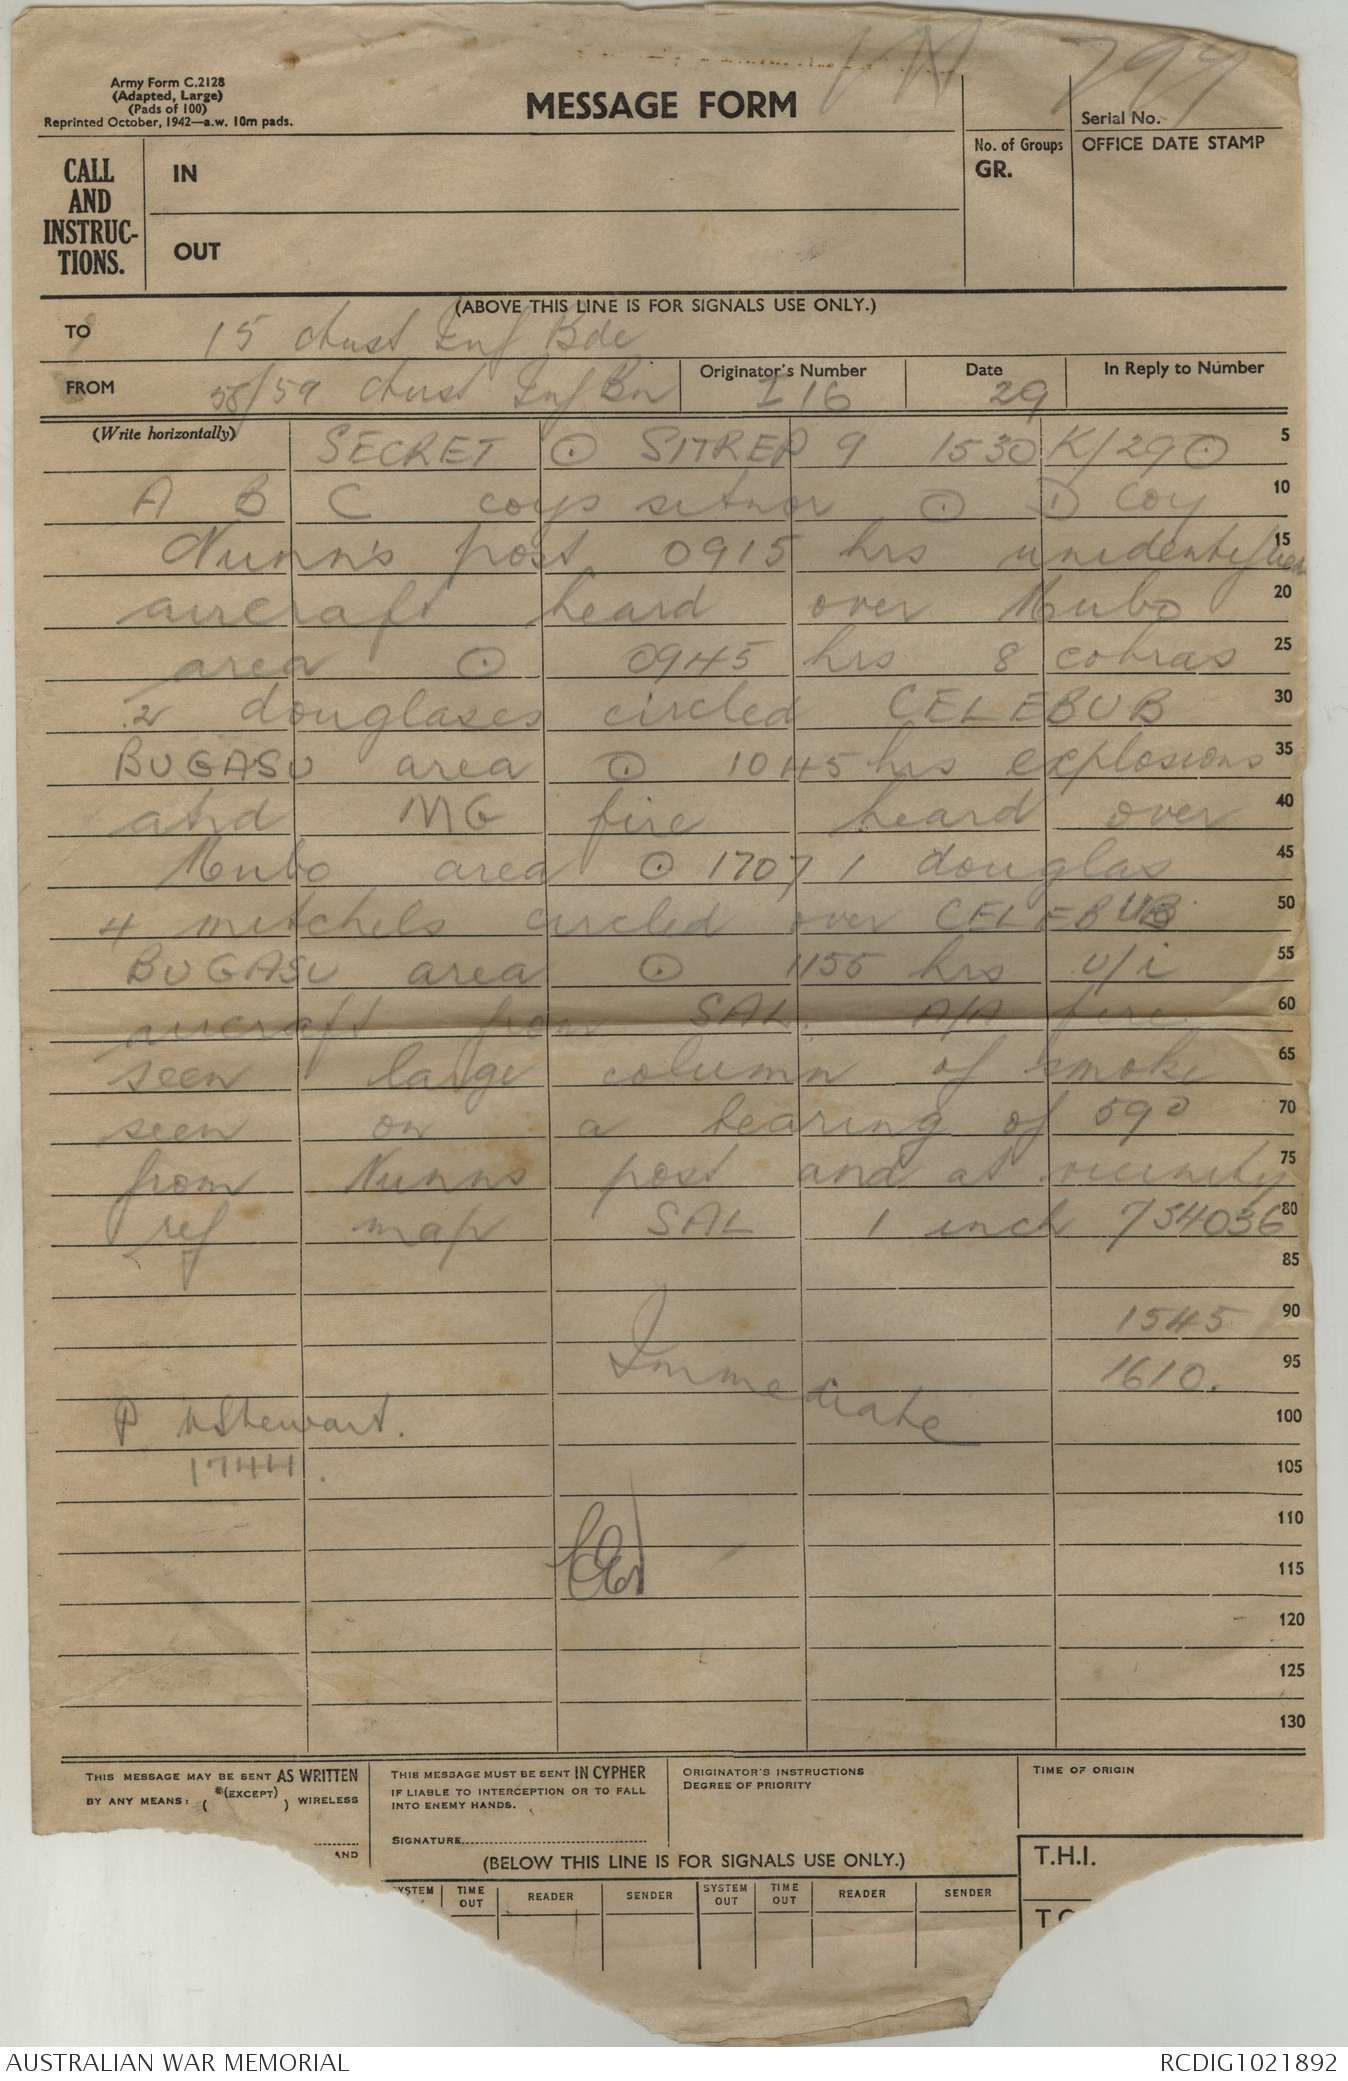 Army Form C.2128
(Adapted, Large)
(Pads of 100)
Reprinted October, 1942—a.w. 10m pads.
MESSAGE FORM
Serial No.
CALL
AND
INSTRUC-
TIONS.
IN
OUT
No. of Groups
GR.
OFFICE DATE STAMP
(ABOVE THIS LINE IS FOR SIGNALS USE ONLY.)
TO 15 Aust Inf Bde
FROM 58/59 Aust Inf Bn
Originator's Number I 16
Date 29
In Reply to Number
(Write horizontally)
SECRET ⊙ SITREP 9 1530 K/29 ⊙ 5
A B C coys sitnor ⊙ D Coy 10
Nunn's post 0915 hrs unidentified 15
aircraft heard over Mubo 20
area ⊙ 0945 hrs 8 cobras 25
2 douglases circled CELEBUB 30
BUGASU area ⊙ 1045 hrs explosions 35
and MG fire heard over 40
Mubo area ⊙ 1707 1 douglas 45
4 mitchels circled over CELEBUB 50
BUGASU area ⊙ 1155 hrs u/i 55
aircraft from SAL. A/A fire 60
seen large column of smoke 65
seen on a bearing of 59° 70
from Nunns post and at vicinity 75
ref map SAL 1 inch 754036 80
85
1545 90
Immediate 1610. 95
Stewart. 100
1744. 105
110
115
120
125
130
THIS MESSAGE MAY BE SENT AS WRITTEN
BY ANY MEANS: *(EXCEPT) WIRELESS
( )
AND
THIS MESSAGE MUST BE SENT IN CYPHER
IF LIABLE TO INTERCEPTION OR TO FALL
INTO ENEMY HANDS.
SIGNATURE
ORIGINATOR'S INSTRUCTIONS
DEGREE OF PRIORITY
TIME OF ORIGIN
T.H.I.
(BELOW THIS LINE IS FOR SIGNALS USE ONLY.)
SYSTEM TIME OUT READER SENDER SYSTEM OUT TIME OUT READER SENDER
AUSTRALIAN WAR MEMORIAL
RCDIG1021892